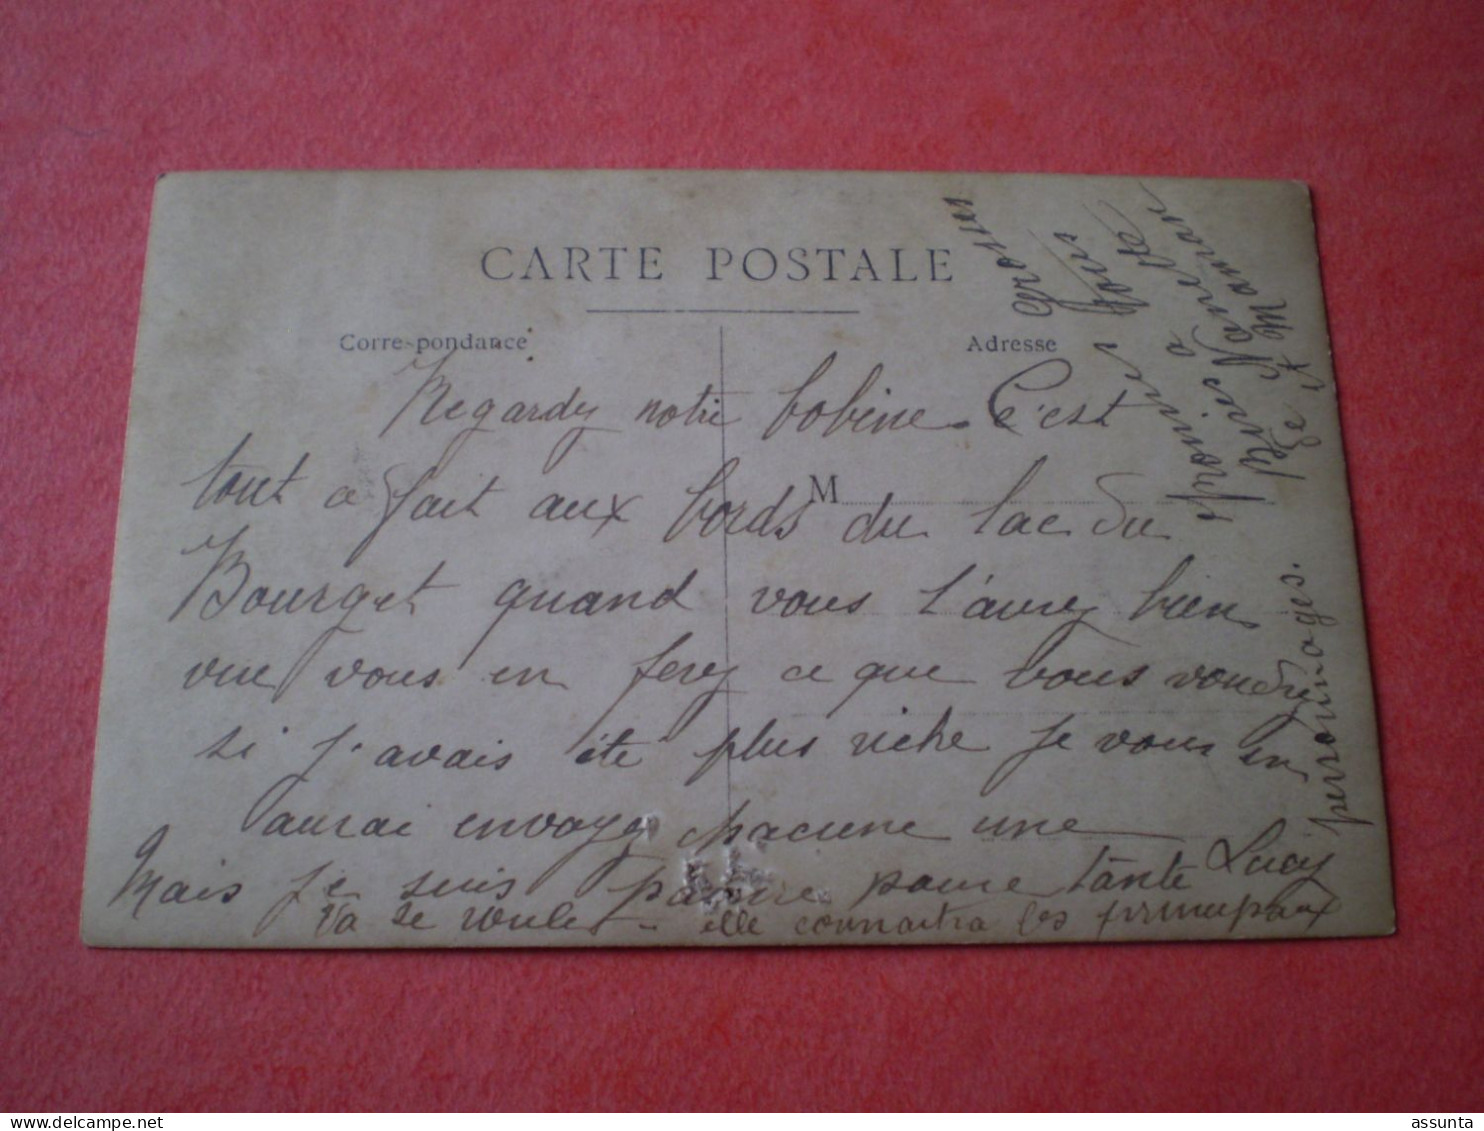 CARTE POSTALE
Correspondance
Adresse
Regardez notre bobine. C'est
tout a fait aux bords du lac du
M
Bourget quand vous l'aurez bien
vue vous en ferez ce que vous voudrez
si j'avais été plus riche je vous en
aurai envoyez chacune une
Mais je suis pauvre. pauvre tante Lucy
va se rouler - elle connaitra les principaux
personnages.
grosses
Bises
et Maman
assunta